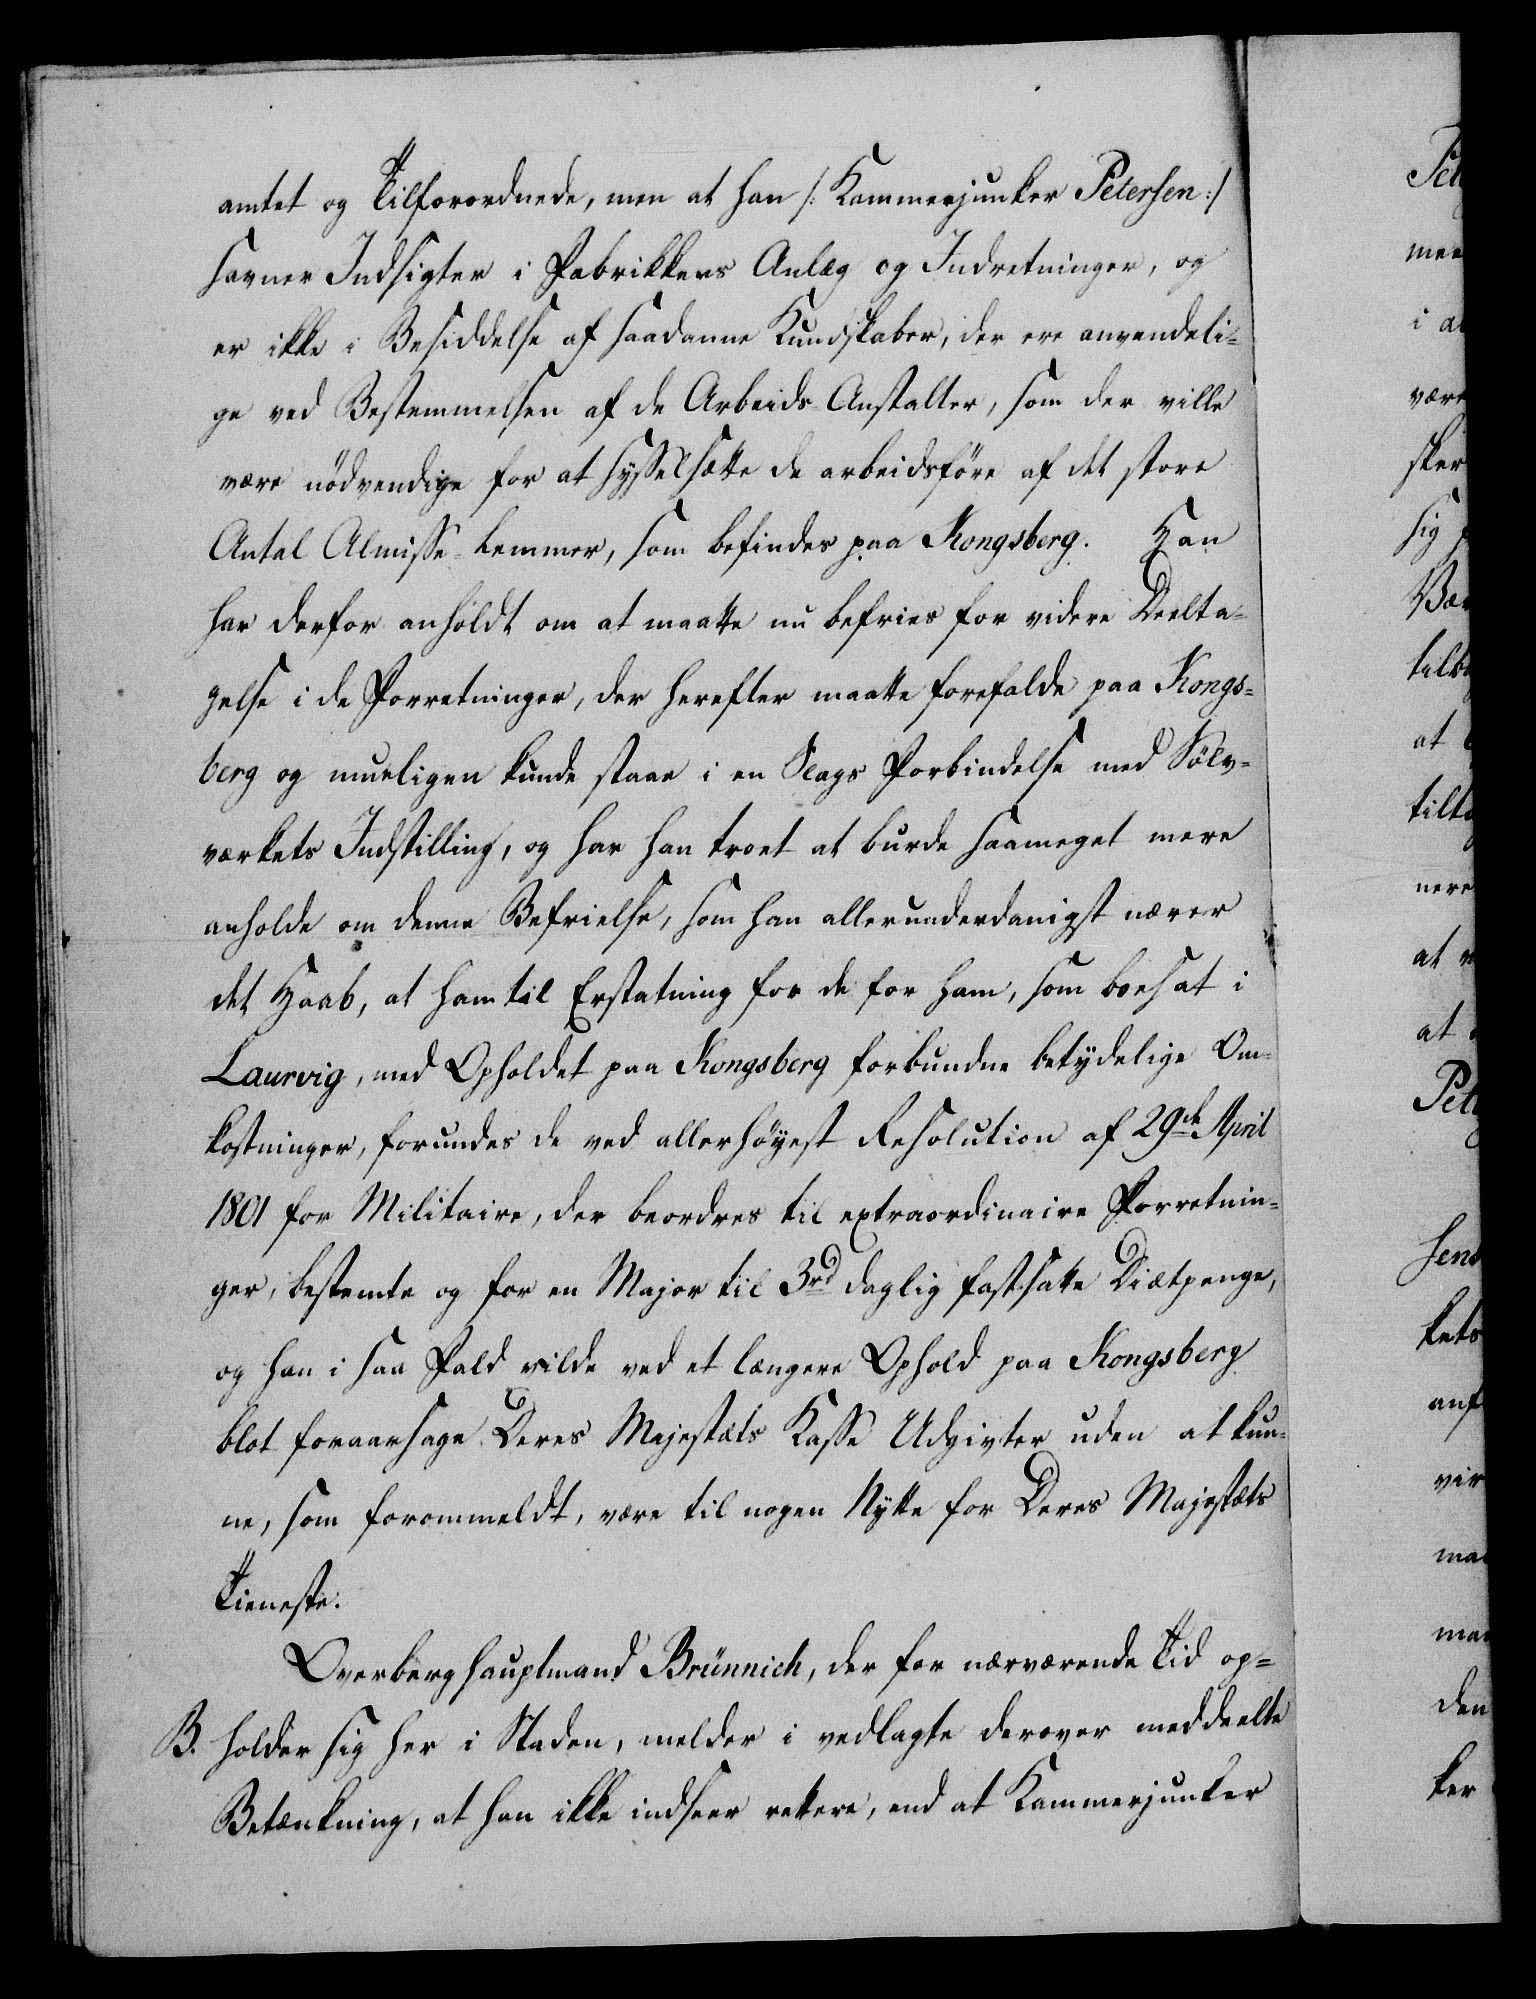 amtet og Tilforordnede, men at han /: Kammerjunker Petersen :/
savner Indsigter i Fabrikkers Anlæg og Indretninger, og
er ikke i Besiddelse af saadanne Kundskaber, der ere anvendeli-
ge ved Bestemmelsen af de Arbeids-Anstalter, som der ville
være nödvendige for at sysselsætte de arbeidsföre af det store
Antal Almisse-Lemmer, som befindes paa Kongsberg. Han
har derfor anholdt om at maatte nu befries for videre Deelta-
gelse i de Forretninger, der herefter maatte forefalde paa Kongs-
berg og mueligen kunde staae i en Slags Forbindelse med Sölv-
værkets Indstilling, og har han troet at burde saameget mere
anholde om denne Befrielse, som han allerunderdanigst nærer
det Haab, at ham til Erstatning for de for ham, som boesat i
Laurvig, med Opholdet paa Kongsberg forbundne betydelige Om-
kostninger, forundes de ved allerhöyest Resolution af 29de April
1801 for Militaire, der beordres til extraordinaire Forretnin-
ger, bestemte og for en Major til 3rd daglig fastsatte Diætpenge,
og han i saa Fald vilde ved et længere Ophold paa Kongsberg
blot foraarsage Deres Majestæts Kasse Udgivter uden at kun-
ne, som forommeldt, være til nogen Nytte for Deres Majestæts
Tieneste.
Overberghauptmand Brünnich, der for nærværende Tid op-
B. holder sig her i Staden, melder i vedlagte derover meddeelte
Betænkning, at han ikke indseer rettere, end at Kammerjunker